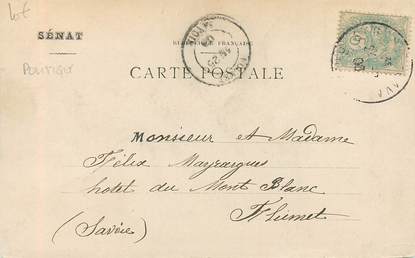 SÉNAT
RÉPUBLIQUE FRANÇAISE
CARTE POSTALE
Monsieur et Madame
Félix Mayrargues
hotel du Mont Blanc
Flumet
(Savoie)